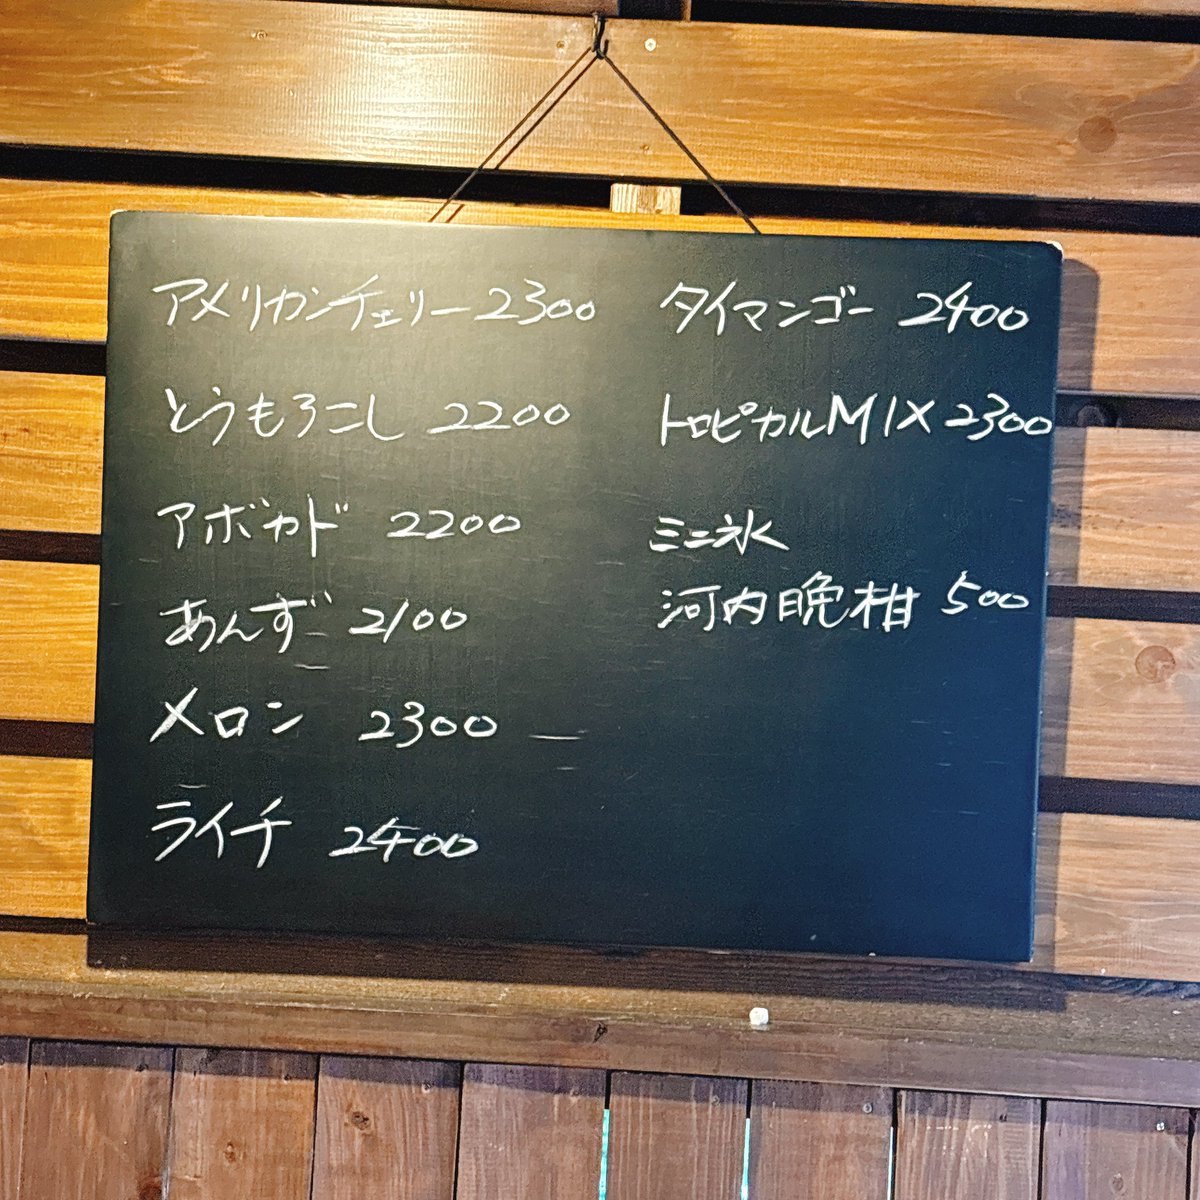 アメリカンチェリー 2300
とうもろこし 2200
アボカド 2200
あんず 2100
メロン 2300
ライチ 2400
タイマンゴー 2400
トロピカルMIX 2300
ミニ氷
河内晩柑 500